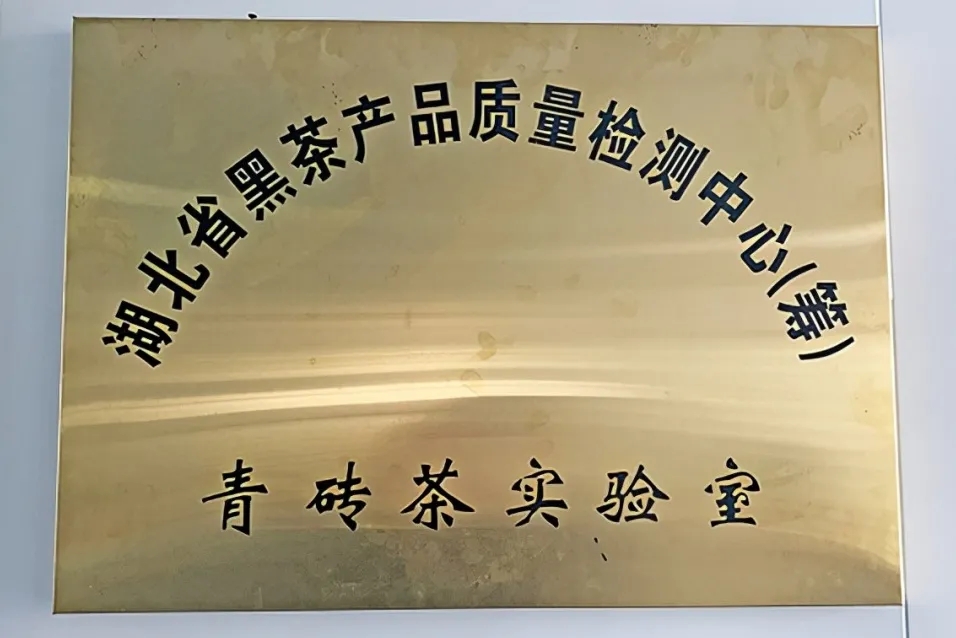 湖北省黑茶产品质量检测中心(筹)
青砖茶实验室